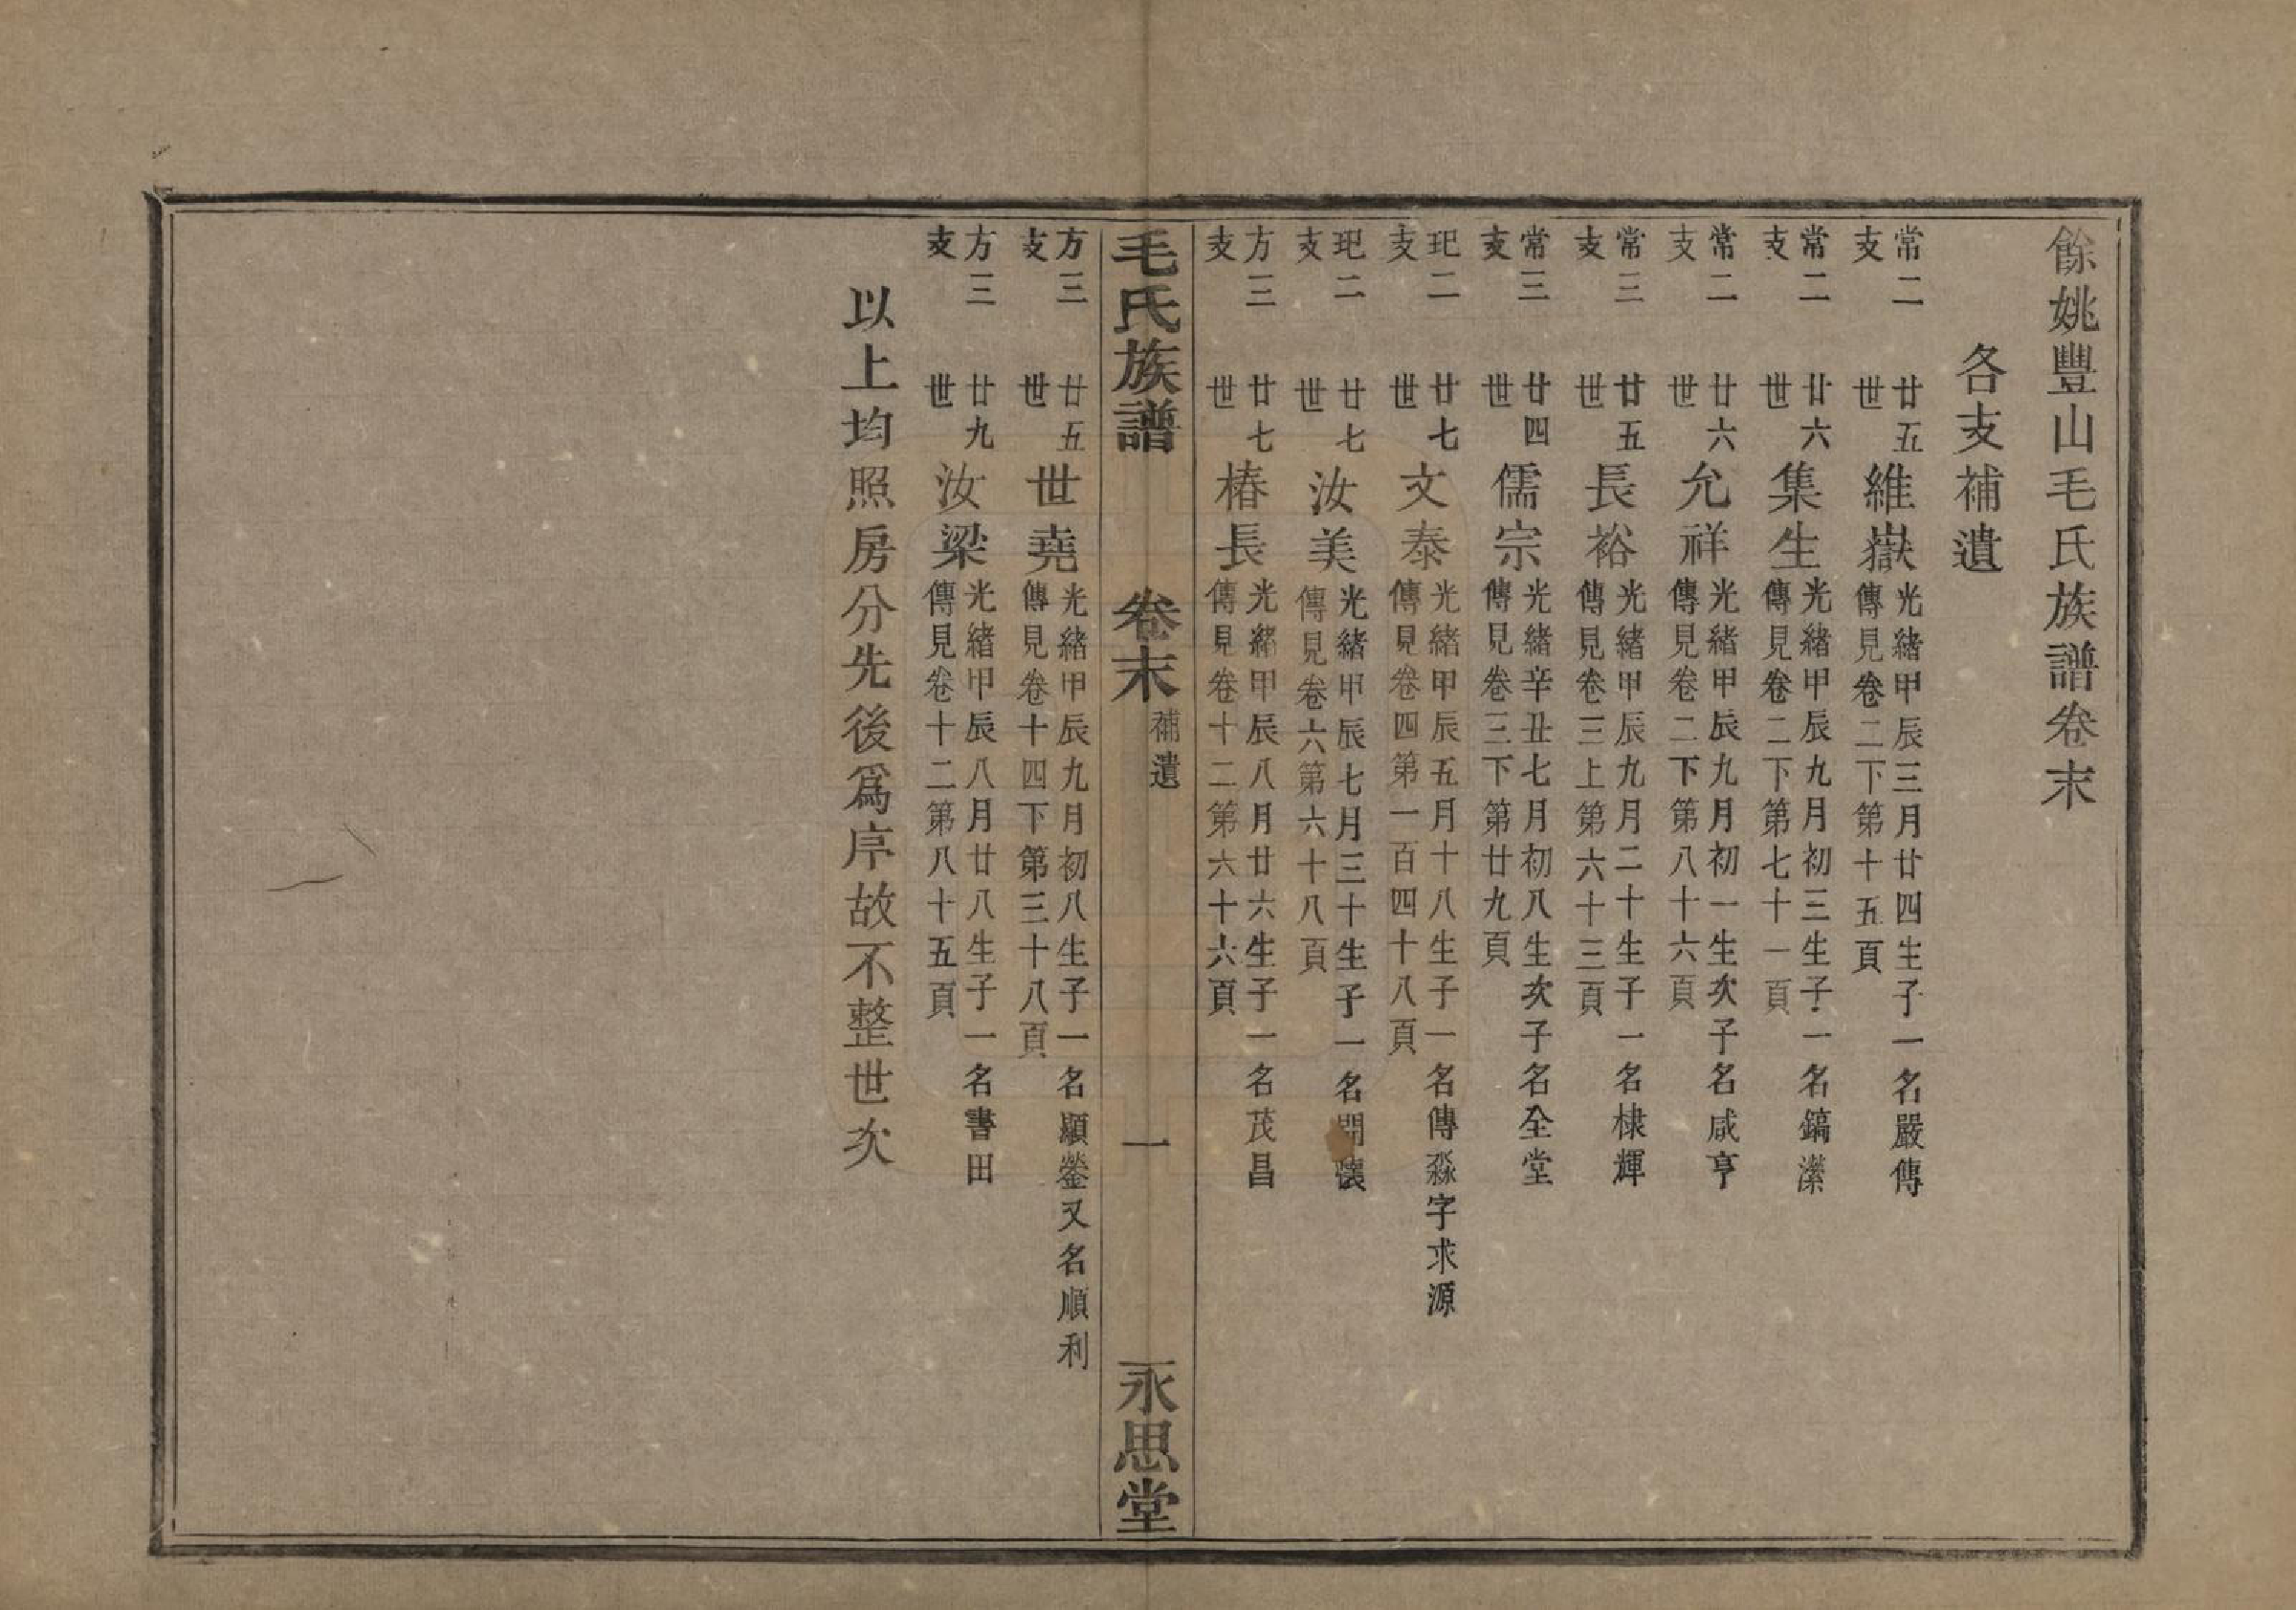 餘姚豐山毛氏族譜卷末
各支補遺
常二支 廿五世 維嶽 光緒甲辰三月廿四生子一名嚴傳 傳見卷二下第十五頁
常二支 廿六世 集生 光緒甲辰九月初三生子一名鎬濼 傳見卷二下第七十一頁
常二支 廿六世 允祥 光緒甲辰九月初一生次子名咸亨 傳見卷二下第八十六頁
常三支 廿五世 長裕 光緒甲辰九月二十生子一名棣輝 傳見卷三上第六十三頁
常三支 廿四世 儒宗 光緒辛丑七月初八生次子名全堂 傳見卷三下第廿九頁
玘二支 廿七世 文泰 光緒甲辰五月十八生子一名傳淼字求源 傳見卷四第一百四十八頁
玘二支 廿七世 汝美 光緒甲辰七月三十生子一名開懷 傳見卷六第六十八頁
方三支 廿七世 椿長 光緒甲辰八月廿六生子一名茂昌 傳見卷十二第六十六頁
毛氏族譜 卷末 補遺 一 永思堂
方三支 廿五世 世堯 光緒甲辰九月初八生子一名顯鎣又名順利 傳見卷十四下第三十八頁
方三支 廿九世 汝梁 光緒甲辰八月廿八生子一名書田 傳見卷十二第八十五頁
以上均照房分先後爲序故不整世次